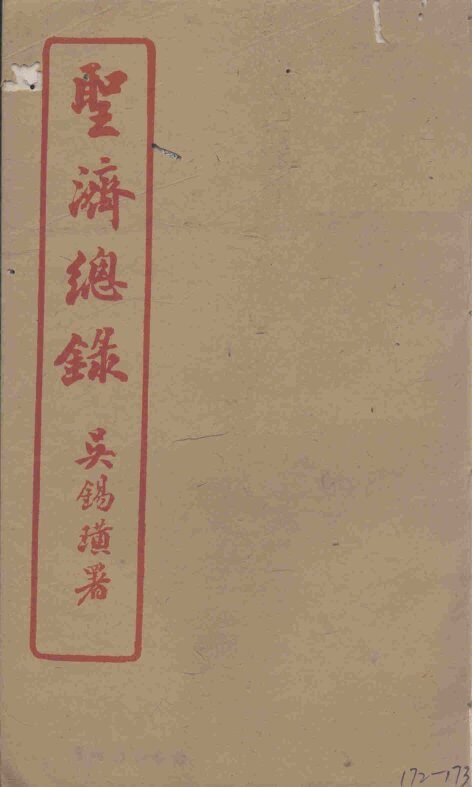 聖濟總錄
吳錫璜署
172-173